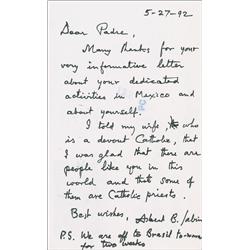 5-27-92
Dear Padre,
Many thanks for your
very informative letter
about your dedicated
activities in Mexico and
about yourself.
I told my wife, who
is a devout Catholic, that
I was glad that there are
people like you in this
world and that some of
them are Catholic priests.
Best wishes, Albert B. Sabin
P.S. We are off to Brazil
for two weeks